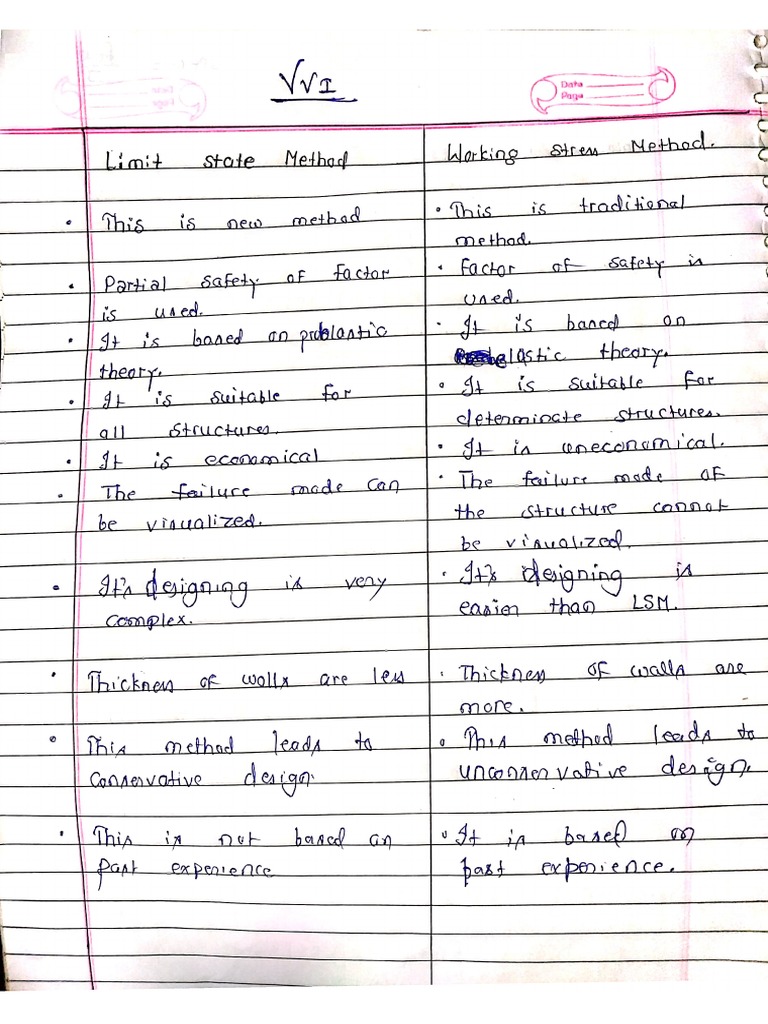 VVI
Date
Page
Limit state Method
This is new method
Partial safety of factor
is used.
It is based on problastic
theory.
It is suitable for
all structures.
It is economical
The failure mode can
be visualized.
It's designing is very
complex.
Thickness of walls are less
This method leads to
Conservative design.
This is not based on
Past experience
Working stress Method.
This is traditional
method.
Factor of safety is
used.
It is based on
elastic theory.
It is suitable for
determinate structures.
It is uneconomical.
The failure mode of
the structure cannot
be visualized.
It's designing is
easier than LSM.
Thickness of walls are
more.
This method leads to
unconservative design.
It is based on
past experience.